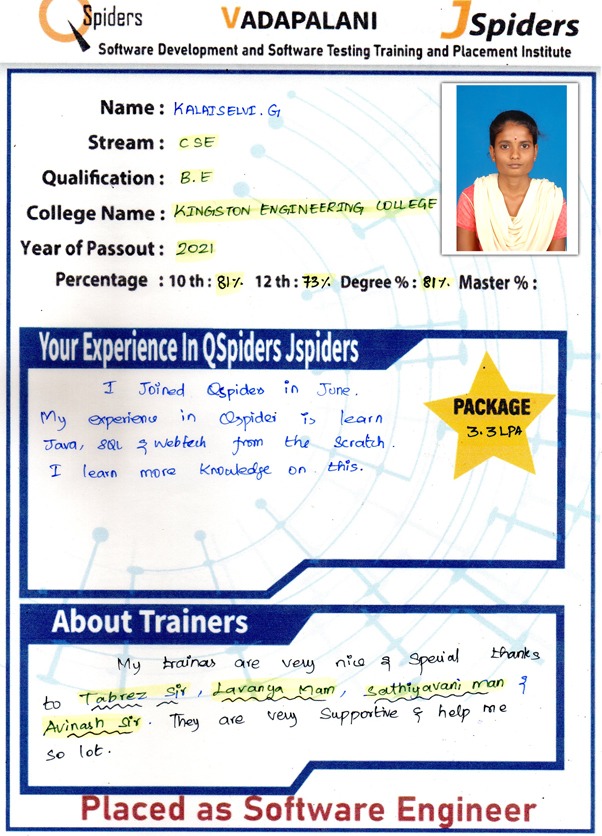 QSpiders VADAPALANI JSpiders
Software Development and Software Testing Training and Placement Institute
Name : KALAISELVI. G
Stream : CSE
Qualification : B.E
College Name : KINGSTON ENGINEERING COLLEGE
Year of Passout : 2021
Percentage : 10 th : 81% 12 th : 73% Degree % : 81% Master % :
Your Experience In QSpiders Jspiders
I Joined Qspides in June.
My experience in Qspider is learn
Java, SQL & Webtech from the Scratch.
I learn more knowledge on this.
PACKAGE
3.3 LPA
About Trainers
My trainas are very nice & Special thanks
to Tabrez Sir, Lavanya Mam, Sathiyavani mam &
Avinash Sir. They are very Supportive & help me
so lot.
Placed as Software Engineer